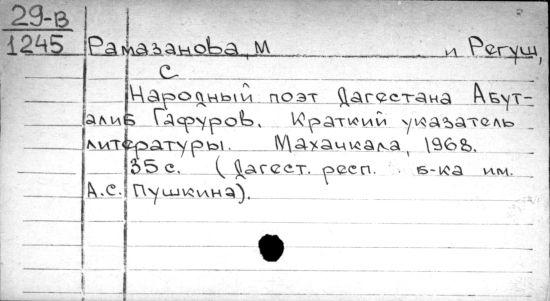 29-В
1245 Рамазанова, М и Регуш,
С
Народный поэт Дагестана Абут-
алиб Гафуров. Краткий указатель
литературы. Махачкала, 1968.
35 с. (Дагест. респ. б-ка им.
А.С. Пушкина).